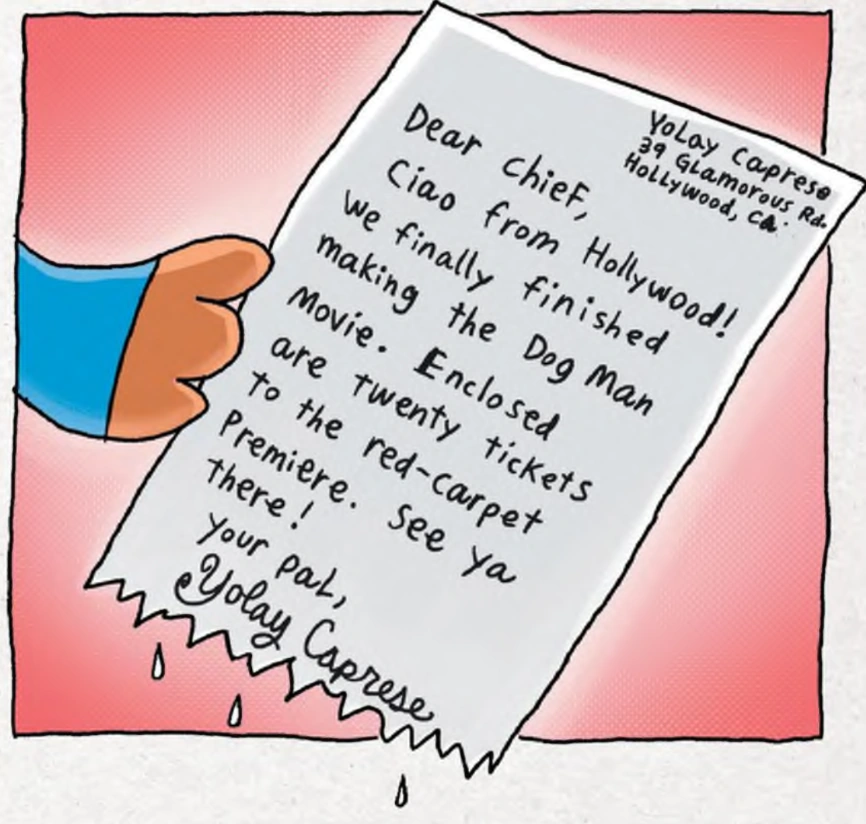 Yolay Caprese
39 Glamorous Rd.
Hollywood, Ca.
Dear Chief,
Ciao from Hollywood!
We finally finished
making the Dog Man
Movie. Enclosed
are twenty tickets
to the red-carpet
Premiere. See ya
there!
Your pal,
Yolay Caprese